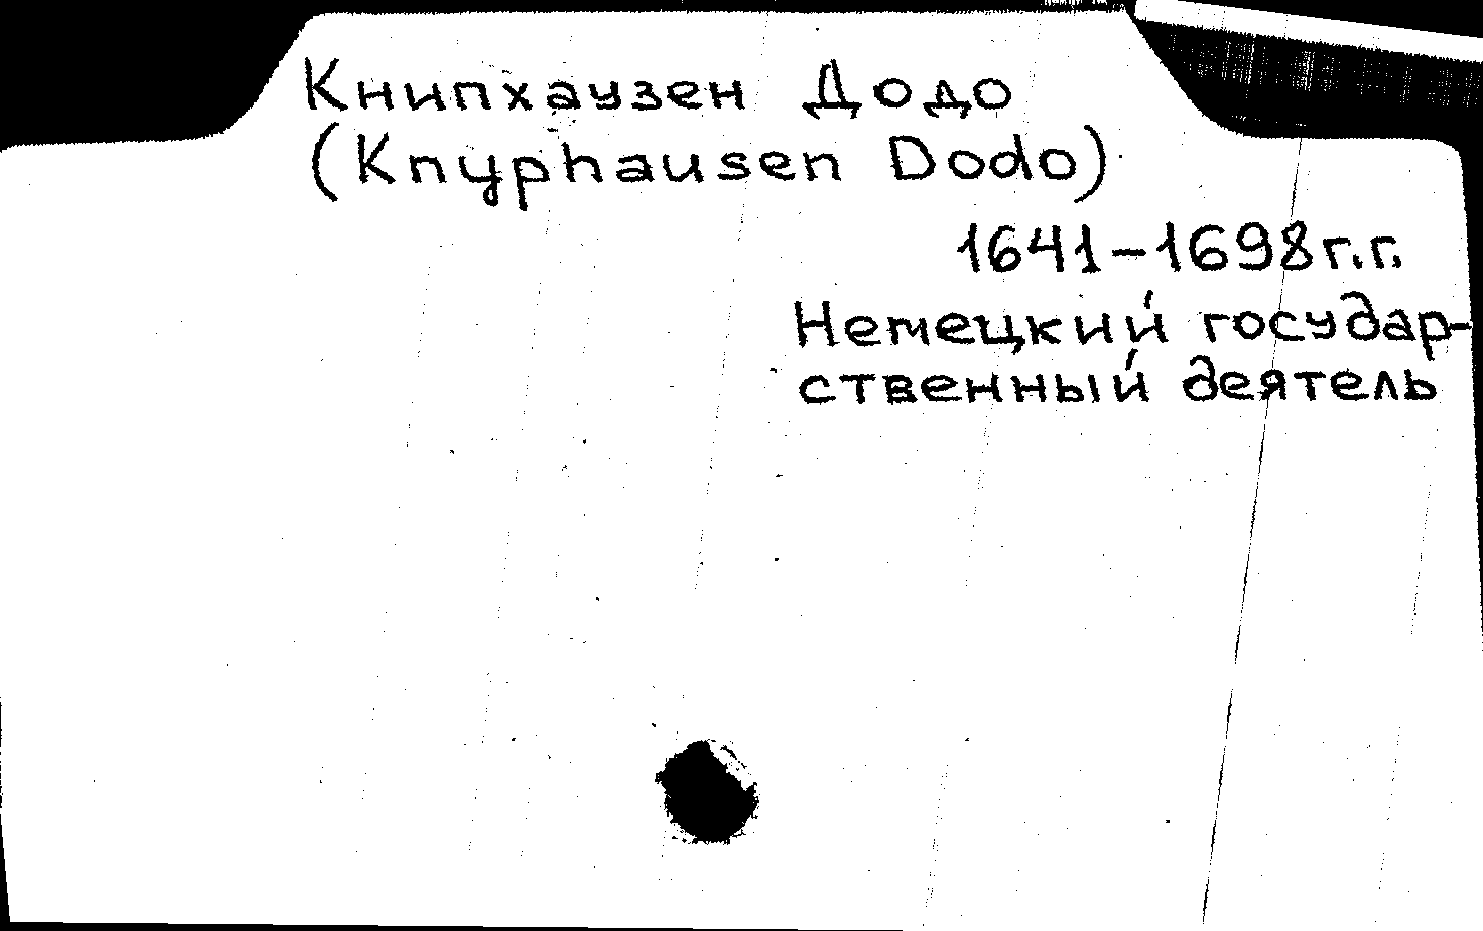 Книпхаузен Додо
(Knyphausen Dodo)
1641-1698г.г.
Немецкий государ-
ственный деятель